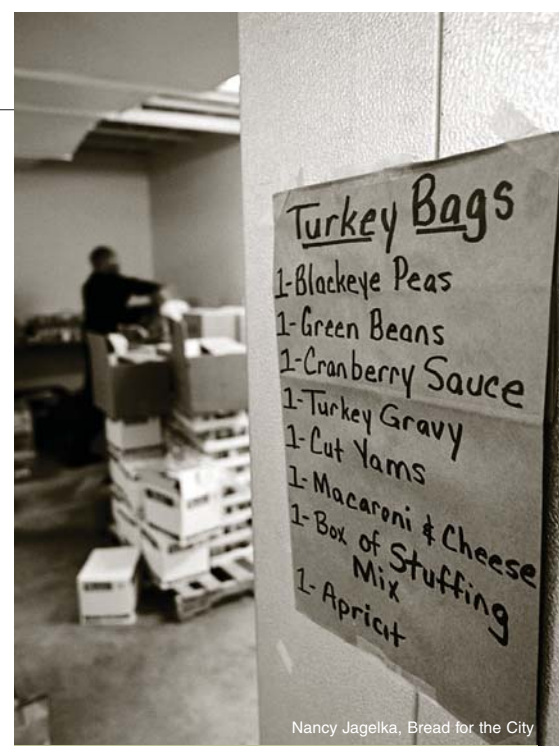 Turkey Bags
1-Blackeye Peas
1-Green Beans
1-Cranberry Sauce
1-Turkey Gravy
1-Cut Yams
1-Macaroni & Cheese
1-Box of Stuffing
Mix
1-Apricit
Nancy Jagelka, Bread for the City